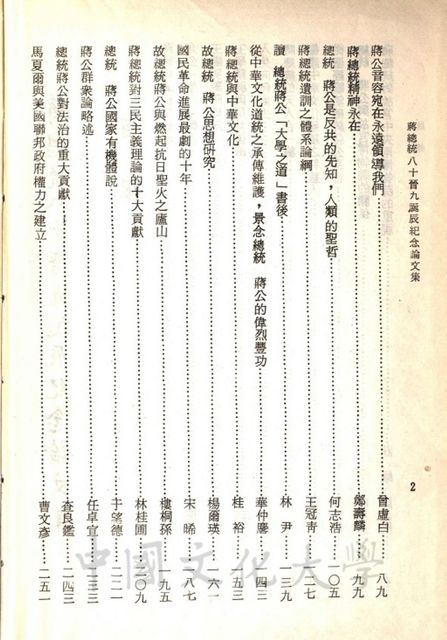 蔣總統八十晉九誕辰紀念論文集
2
蔣公音容宛在永遠領導我們……曾虛白……八九
蔣總統精神永在……鄭壽麟……九九
總統 蔣公是反共的先知，人類的聖哲……何志浩……一〇五
蔣總統遺訓之體系論綱……王冠青……一一七
讀 總統蔣公「大學之道」書後……林 尹……一三九
從中華文化道統之承傳維護，景念總統 蔣公的偉烈豐功……華仲麐……一四三
蔣總統與中華文化……桂 裕……一五三
故總統 蔣公思想研究……楊爾瑛……一六一
國民革命進展最劇的十年……宋 晞……一八七
故總統蔣公與燃起抗日聖火之廬山……樓桐孫……一九五
蔣總統對三民主義理論的十大貢獻……林桂圃……二〇九
總統 蔣公國家有機體說……于望德……二二一
蔣公群衆論略述……任卓宣……二三三
總統蔣公對法治的重大貢獻……查良鑑……二四三
馬夏爾與美國聯邦政府權力之建立……曹文彥……二五一
中國文化大學